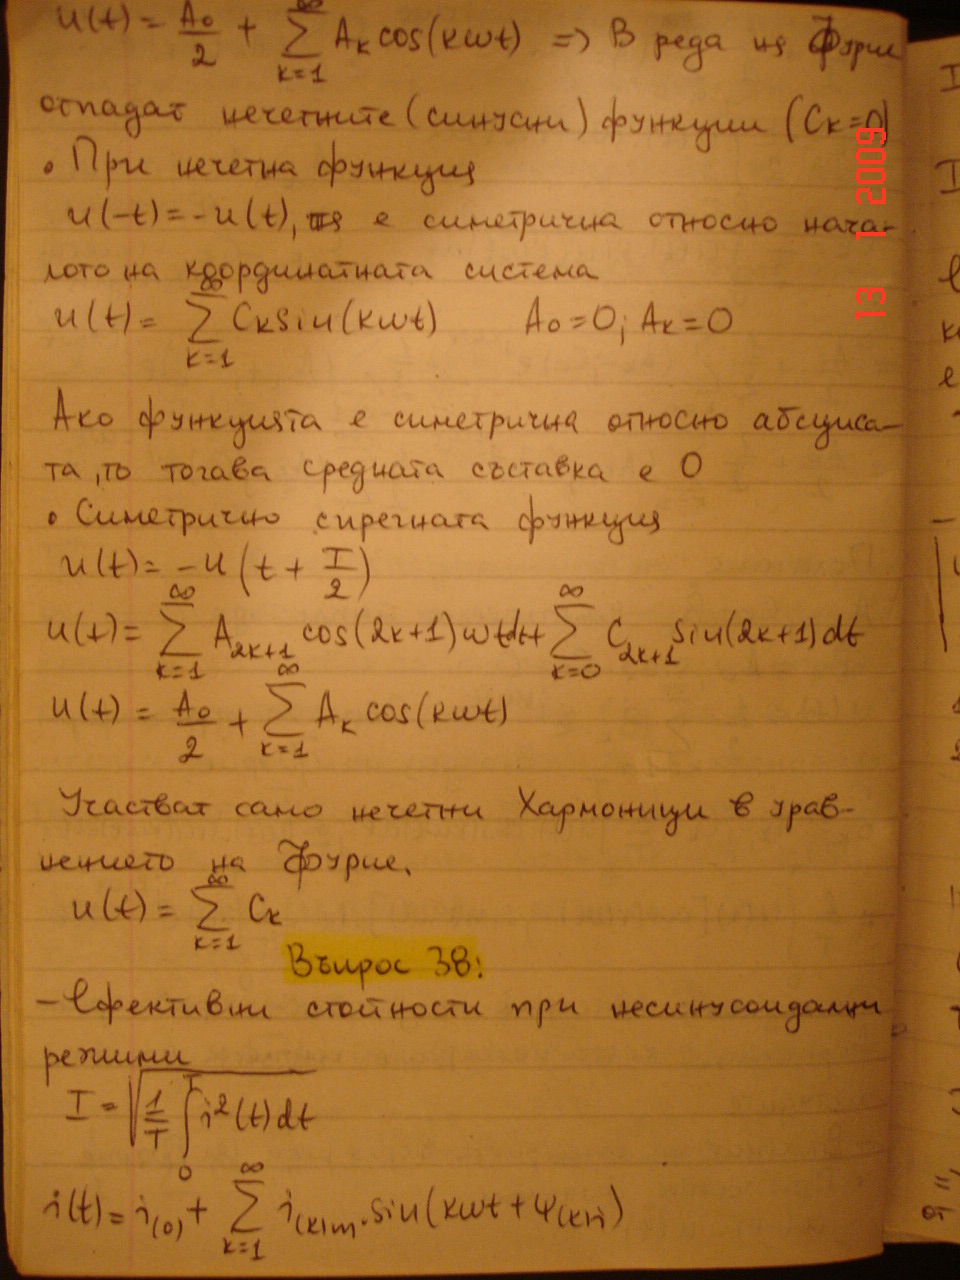 u(t) = A₀/2 + ∑_{k=1}^{∞} A_k cos(kωt) => В реда на Фурие
отпадат нечетните (синусни) функции (C_k=0)
• При нечетна функция
u(-t) = -u(t), тя е симетрична относно нача-
лото на координатната система
u(t) = ∑_{k=1}^{∞} C_k sin(kωt) A₀=0; A_k=0
Ако функцията е симетрична относно абсциса-
та, то тогава средната съставка е 0
• Симетрично спрегната функция
u(t) = -u(t + T/2)
u(t) = ∑_{k=1}^{∞} A_{2k+1} cos(2k+1)ωtdt + ∑_{k=0}^{∞} C_{2k+1} sin(2k+1)dt
u(t) = A₀/2 + ∑_{k=1}^{∞} A_k cos(kωt)
Участват само нечетни Хармоници в урав-
нението на Фурие.
u(t) = ∑_{k=1}^{∞} C_k
Въпрос 38:
- Ефективни стойности при несинусоидални
режими
I = √(1/T ∫₀ᵀ i²(t)dt)
i(t) = i_{(0)} + ∑_{k=1}^{∞} i_{(k)m}.sin(kωt + ψ_{(k)i})
13 1 2009
от